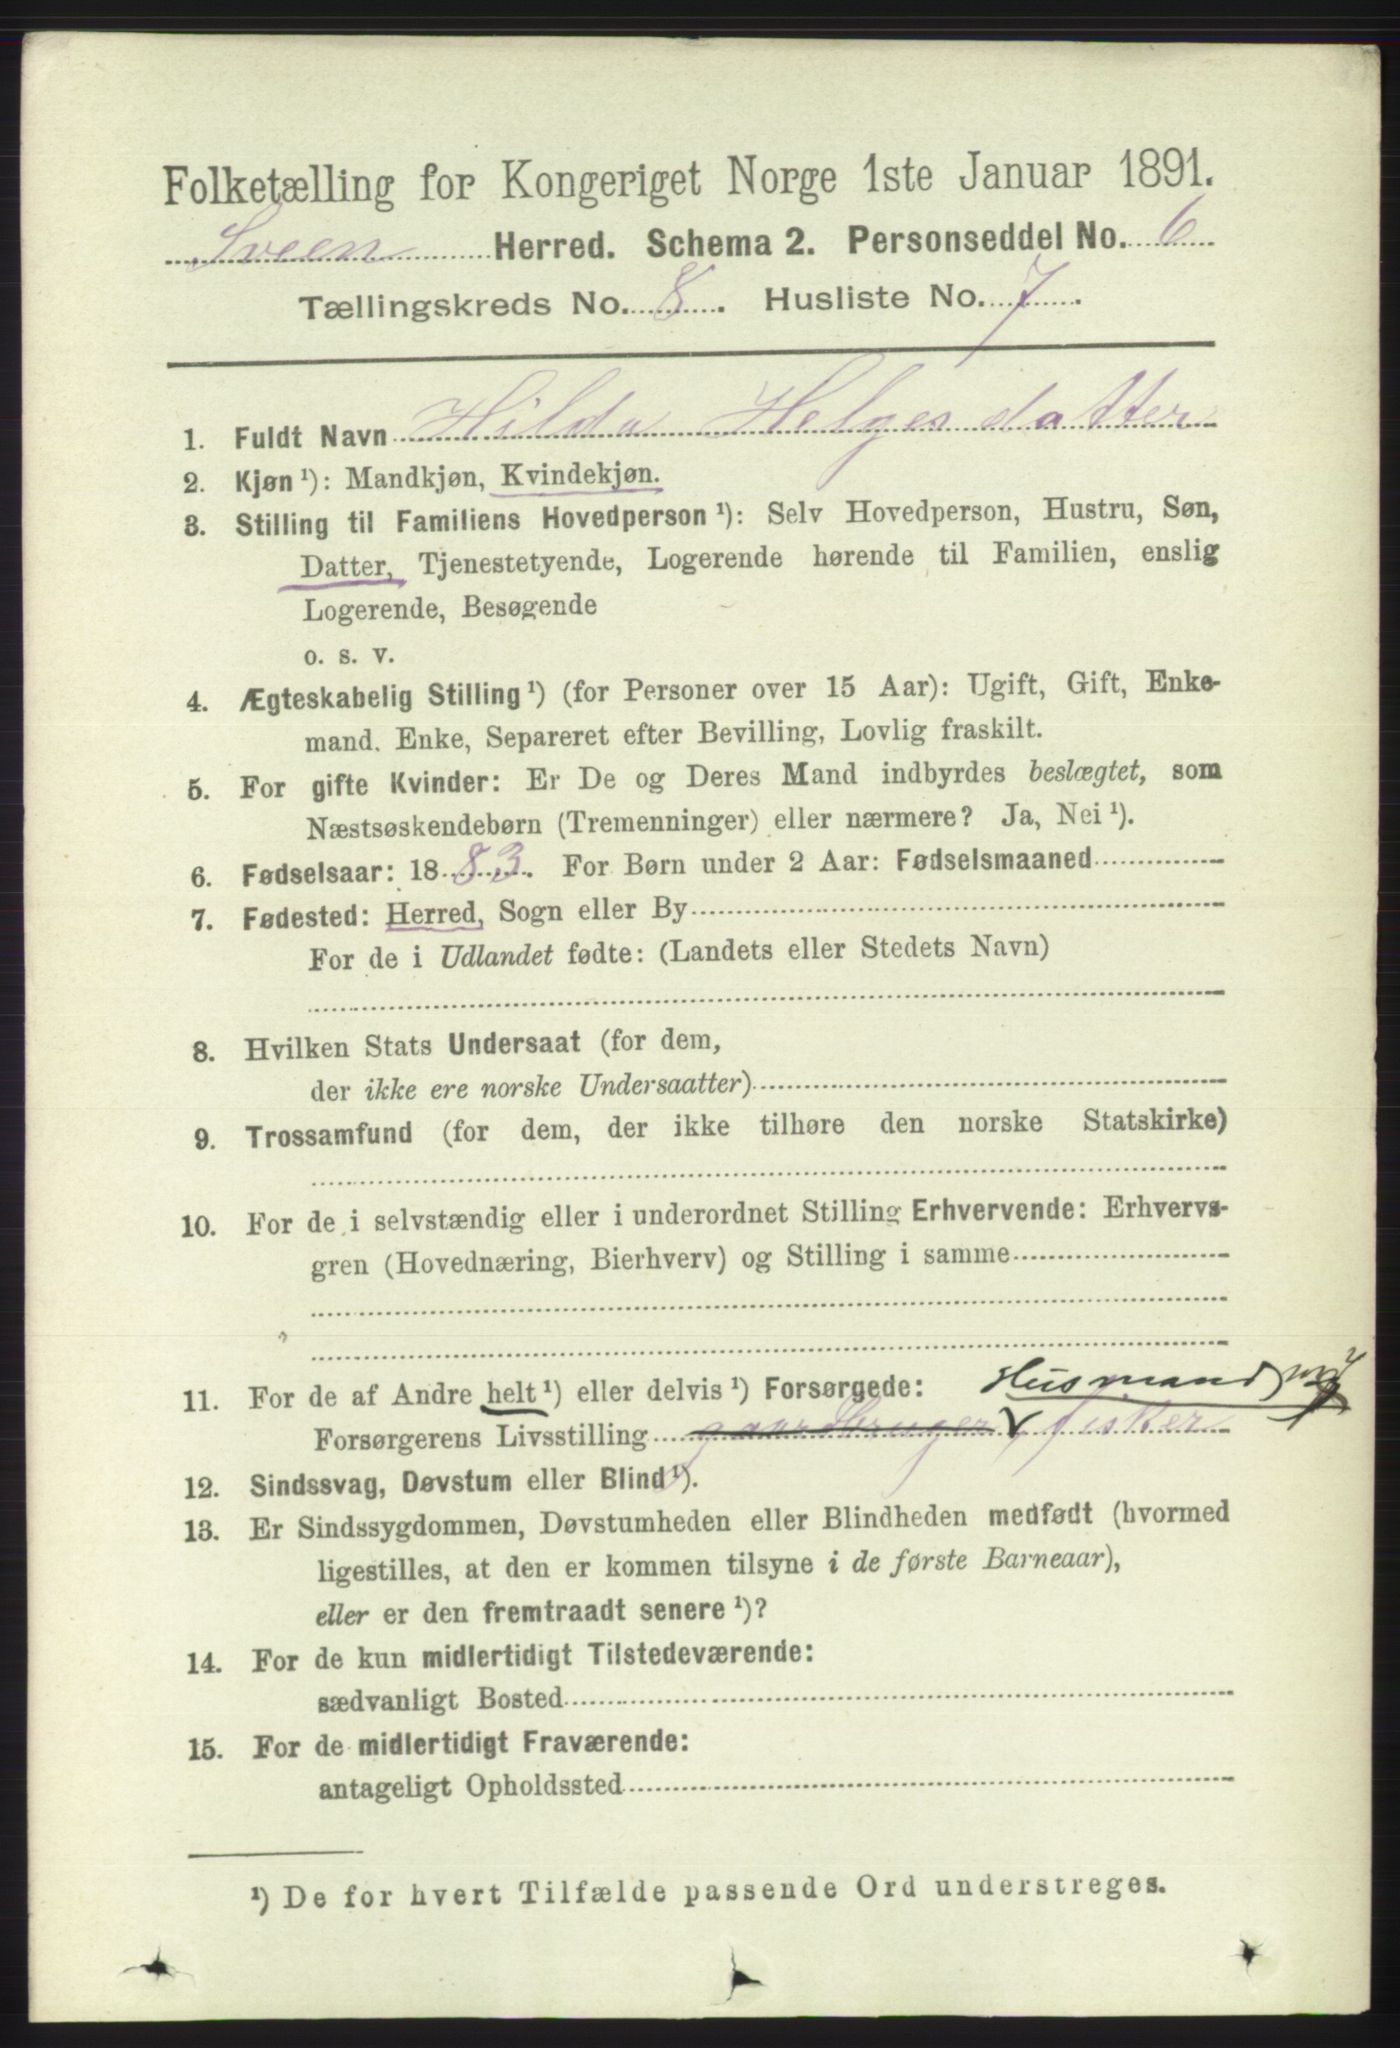 Folketælling for Kongeriget Norge 1ste Januar 1891.
Sveen Herred. Schema 2. Personseddel No. 6
Tællingskreds No. 8. Husliste No. 7.
1. Fuldt Navn Hilda Helgesdatter
2. Kjøn ¹): Mandkjøn, Kvindekjøn.
3. Stilling til Familiens Hovedperson ¹): Selv Hovedperson, Hustru, Søn,
Datter, Tjenestetyende, Logerende hørende til Familien, enslig
Logerende, Besøgende
o. s. v.
4. Ægteskabelig Stilling ¹) (for Personer over 15 Aar): Ugift, Gift, Enke-
mand, Enke, Separeret efter Bevilling, Lovlig fraskilt.
5. For gifte Kvinder: Er De og Deres Mand indbyrdes beslægtet, som
Næstsøskendebørn (Tremenninger) eller nærmere? Ja, Nei ¹).
6. Fødselsaar: 1883. For Børn under 2 Aar: Fødselsmaaned
7. Fødested: Herred, Sogn eller By
For de i Udlandet fødte: (Landets eller Stedets Navn)
8. Hvilken Stats Undersaat (for dem,
der ikke ere norske Undersaatter)
9. Trossamfund (for dem, der ikke tilhøre den norske Statskirke)
10. For de i selvstændig eller i underordnet Stilling Erhvervende: Erhvervs-
gren (Hovednæring, Bierhverv) og Stilling i samme
11. For de af Andre helt ¹) eller delvis ¹) Forsørgede: Husmand
Forsørgerens Livsstilling gaardbruger, fisker
12. Sindssvag, Døvstum eller Blind ¹).
13. Er Sindssygdommen, Døvstumheden eller Blindheden medfødt (hvormed
ligestilles, at den er kommen tilsyne i de første Barneaar),
eller er den fremtraadt senere ¹)?
14. For de kun midlertidigt Tilstedeværende:
sædvanligt Bosted
15. For de midlertidigt Fraværende:
antageligt Opholdssted
¹) De for hvert Tilfælde passende Ord understreges.